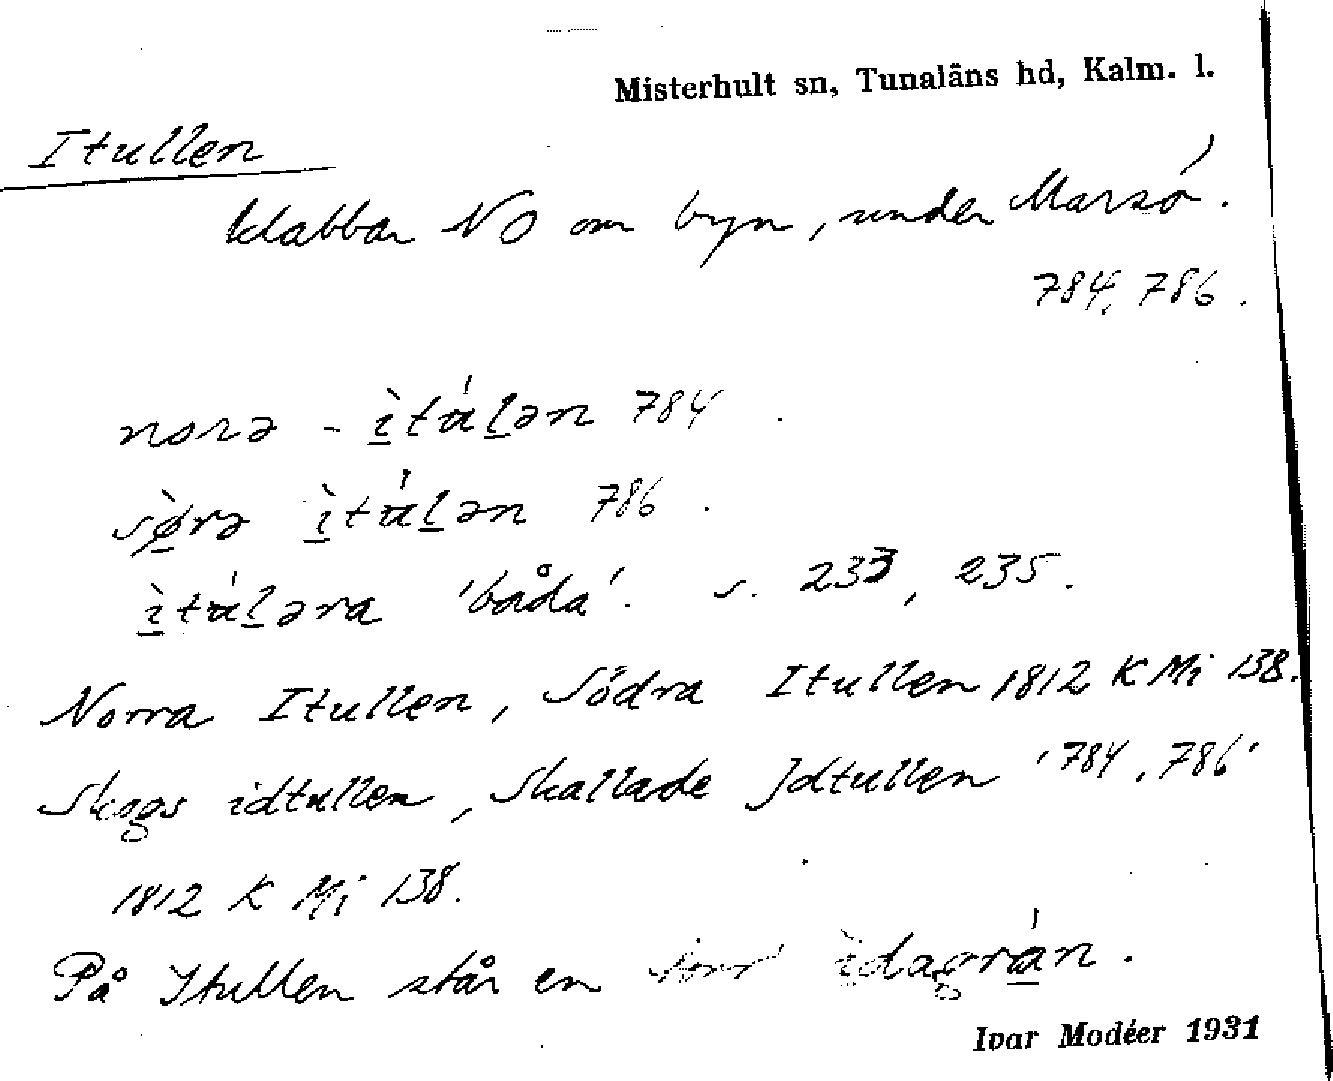 Misterhult sn, Tunaläns hd, Kalm. l.
Itullen
klabbar NO om byn, under Marsö.
784, 786.
norə - ìtúlən 784.
sø̀rə ìtúlən 786.
ìtúləra 'båda'. s. 233, 235.
Norra Itullen, Södra Itullen 1812 K Mi 138.
Skogs idtullen, Skallade Jdtullen '784, 786'
1812 K Mi 138.
På Itullen står en ìdagrán.
Ivar Modéer 1931